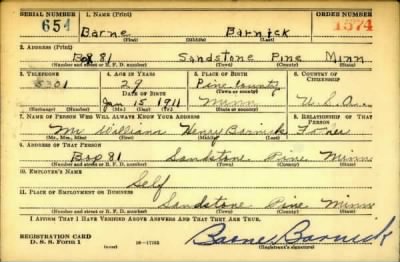 SERIAL NUMBER 1. NAME (Print) ORDER NUMBER
654 Barne Barnick 1374
(First) (Middle) (Last)
2. ADDRESS (Print)
Box 81 Sandstone Pine Minn
(Number and street or R. F. D. number) (Town) (County) (State)
3. TELEPHONE 4. AGE IN YEARS 5. PLACE OF BIRTH 6. COUNTRY OF CITIZENSHIP
5301 29 Pine County
DATE OF BIRTH (Town or county)
Jan 15 1911 Minn U.S.A.
(Exchange) (Number) (Mo.) (Day) (Yr.) (State or country)
7. NAME OF PERSON WHO WILL ALWAYS KNOW YOUR ADDRESS 8. RELATIONSHIP OF THAT PERSON
Mr William Henry Barnick
(Mr., Mrs., Miss) (First) (Middle) (Last)
9. ADDRESS OF THAT PERSON
Box 81 Sandstone Pine Minn
(Number and street or R. F. D. number) (Town) (County) (State)
10. EMPLOYER'S NAME
Self
11. PLACE OF EMPLOYMENT OR BUSINESS
Sandstone Pine Minn
(Number and street or R. F. D. number) (Town) (County) (State)
I AFFIRM THAT I HAVE VERIFIED ABOVE ANSWERS AND THAT THEY ARE TRUE.
REGISTRATION CARD
D. S. S. Form 1 16—17105 Barne Barnick
(Registrant's signature)